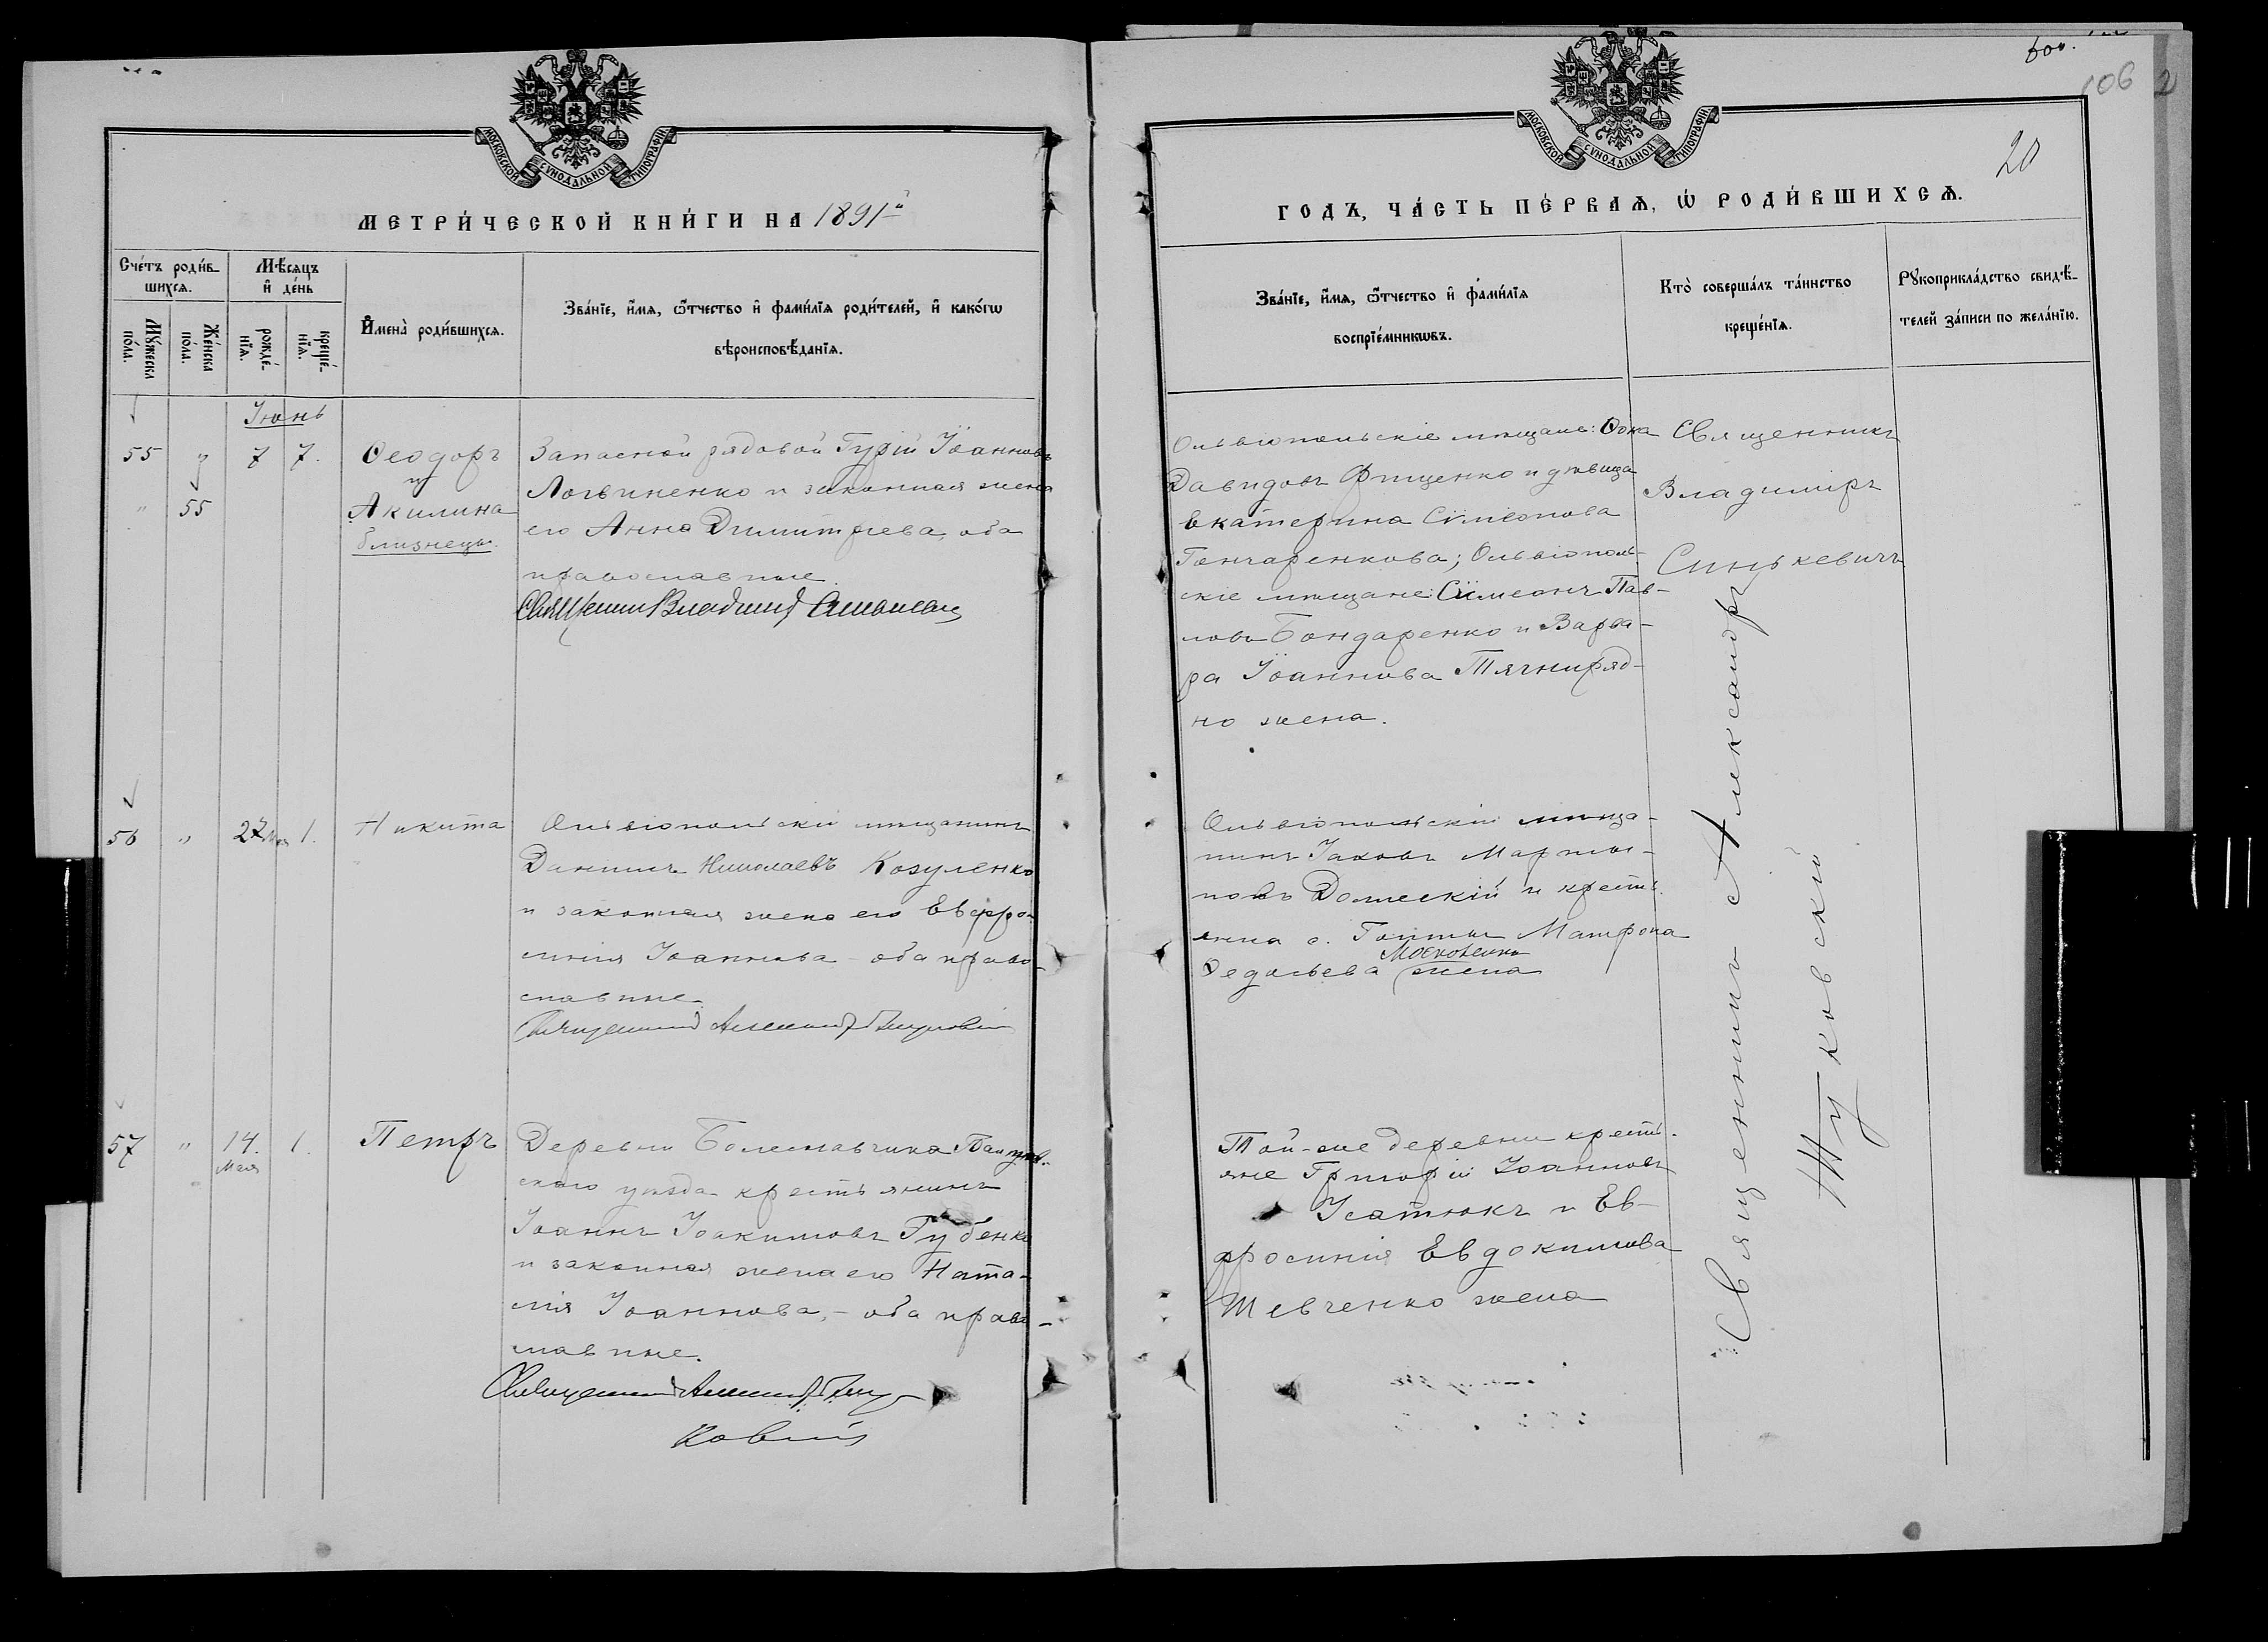 МОСКОВСКОЙ СѴНОДАЛЬНОЙ ТИПОГРАФІИ
МЕТРИ́ЧЕСКОЙ КНИ́ГИ НА 1891-й
Сче́тъ роди́в-
шихсѧ.
Мꙋ́жеска
по́ла.
Же́нска
по́ла.
Мѣ́сѧцъ
и҆ де́нь
рожде́-
нїѧ.
креще́-
нїѧ.
И҆мена̀ роди́вшихсѧ.
Зва́нїе, и҆́мѧ, ѻ҆́тчество и҆ фами́лїѧ роди́телей, и҆ како́гѡ
вѣроисповѣ́данїѧ.
Іюнь
55 " 7 7.
" 55
Ѳеодоръ
и
Акилина
близнецы.
Запасной рядовой Гурій Іоанновъ
Логвиненко и законная жена
его Анна Димитріева, оба
православные.
Священникъ Владиміръ Синькевичъ
56 " 27 Мая 1.
Никита
Ольвіопольскій мѣщанинъ
Даніилъ Николаевъ Козуленко
и законная жена его Евфро-
синія Іоаннова - оба право-
славные.
Священникъ Александръ Жуковскій
57 " 14. 1.
Мая
Петръ
Деревни Болеславчика
скаго уѣзда крестьянинъ
Іоаннъ Іоакимовъ Губенко
и законная жена его Ната-
лія Іоаннова, - оба право-
славные.
Священникъ Александръ Жу-
ковскій
106 2
20
МОСКОВСКОЙ СѴНОДАЛЬНОЙ ТИПОГРАФІИ
ГОДЪ, ЧА́СТЬ ПЕ́РВАѦ, Ѡ҆ РОДИ́ВШИХСѦ.
Зва́нїе, и҆́мѧ, ѻ҆́тчество и҆ фами́лїѧ
воспрїе́мникѡвъ.
Кто̀ соверша́лъ та́инство
креще́нїѧ.
Рꙋкоприкла́дство свидѣ́-
телей за́писи по жела́нїю.
Ольвіопольскіе мѣщане: Ѳома
Давидовъ Фищенко и дѣвица
Екатерина Сѵмеонова
Гончаренкова; Ольвіополь-
скіе мѣщане: Сѵмеонъ Пав-
ловъ Бондаренко и Варва-
ра Іоаннова Тягниряд-
но жена.
Священникъ
Владиміръ
Синькевичъ
Ольвіопольскій мѣща-
нинъ Іаковъ Марты-
новъ и крестья-
янка с. Матрона
Московенко
Ѳедосьева жена
Той-же деревни кресть-
яне Григорій Іоанновъ
Усатюкъ и Ев-
фросинія Евдокимова
Шевченко жена
Священникъ Александръ
Жуковскій